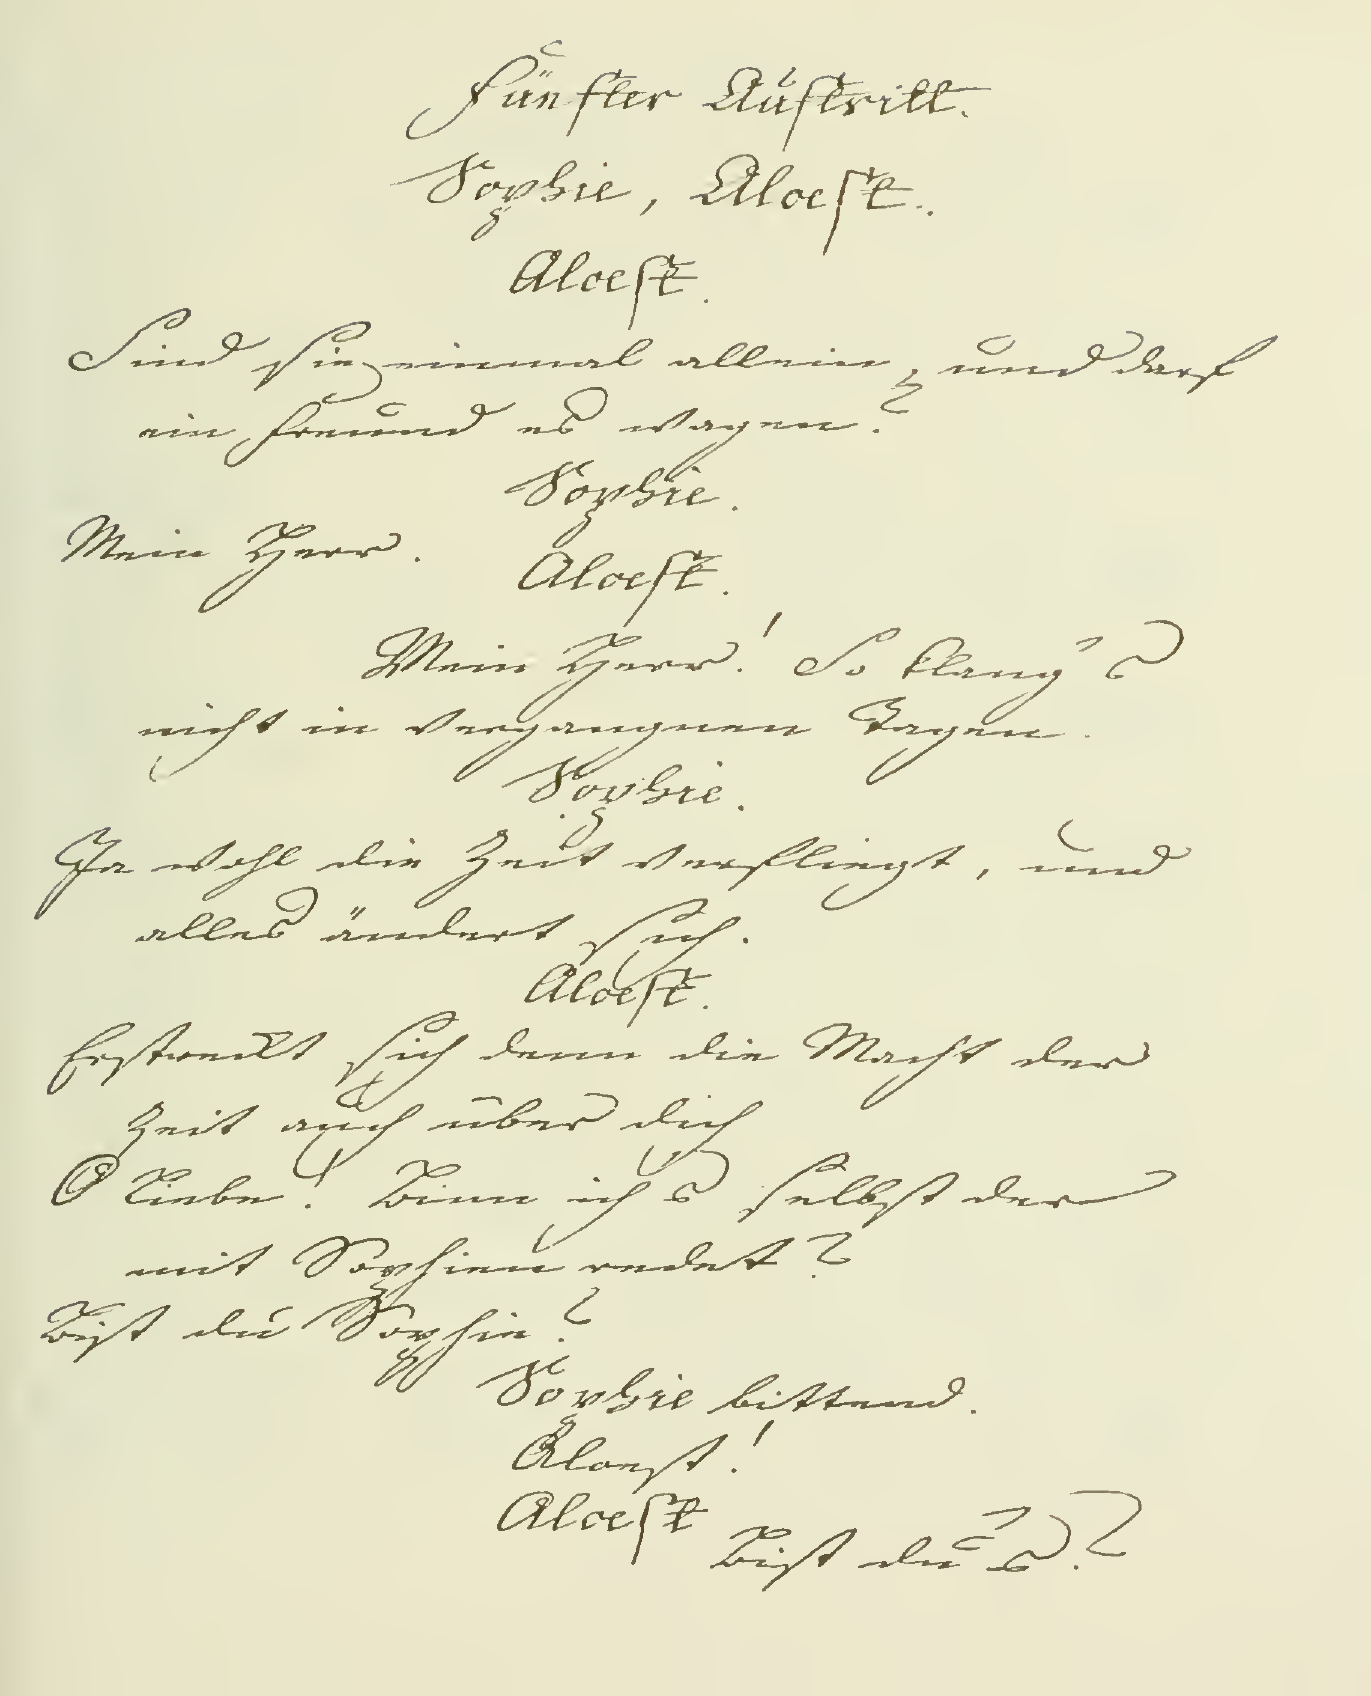 Fünfter Auftritt.
Sophie, Alcest.
Alcest.
Sind sie einmal allein, und darf
ein Freund es wagen?
Sophie.
Mein Herr.
Alcest.
Mein Herr! So klang's
nicht in vergangnen Tagen.
Sophie.
Ja wohl die Zeit verfliegt, und
alles ändert sich.
Alcest.
Erstreckt sich denn die Macht der
Zeit auch über dich
O Liebe! Binn ich's selbst der
mit Sophien redet?
Bist du Sophie?
Sophie bittend.
Alcest!
Alcest
Bist du's?